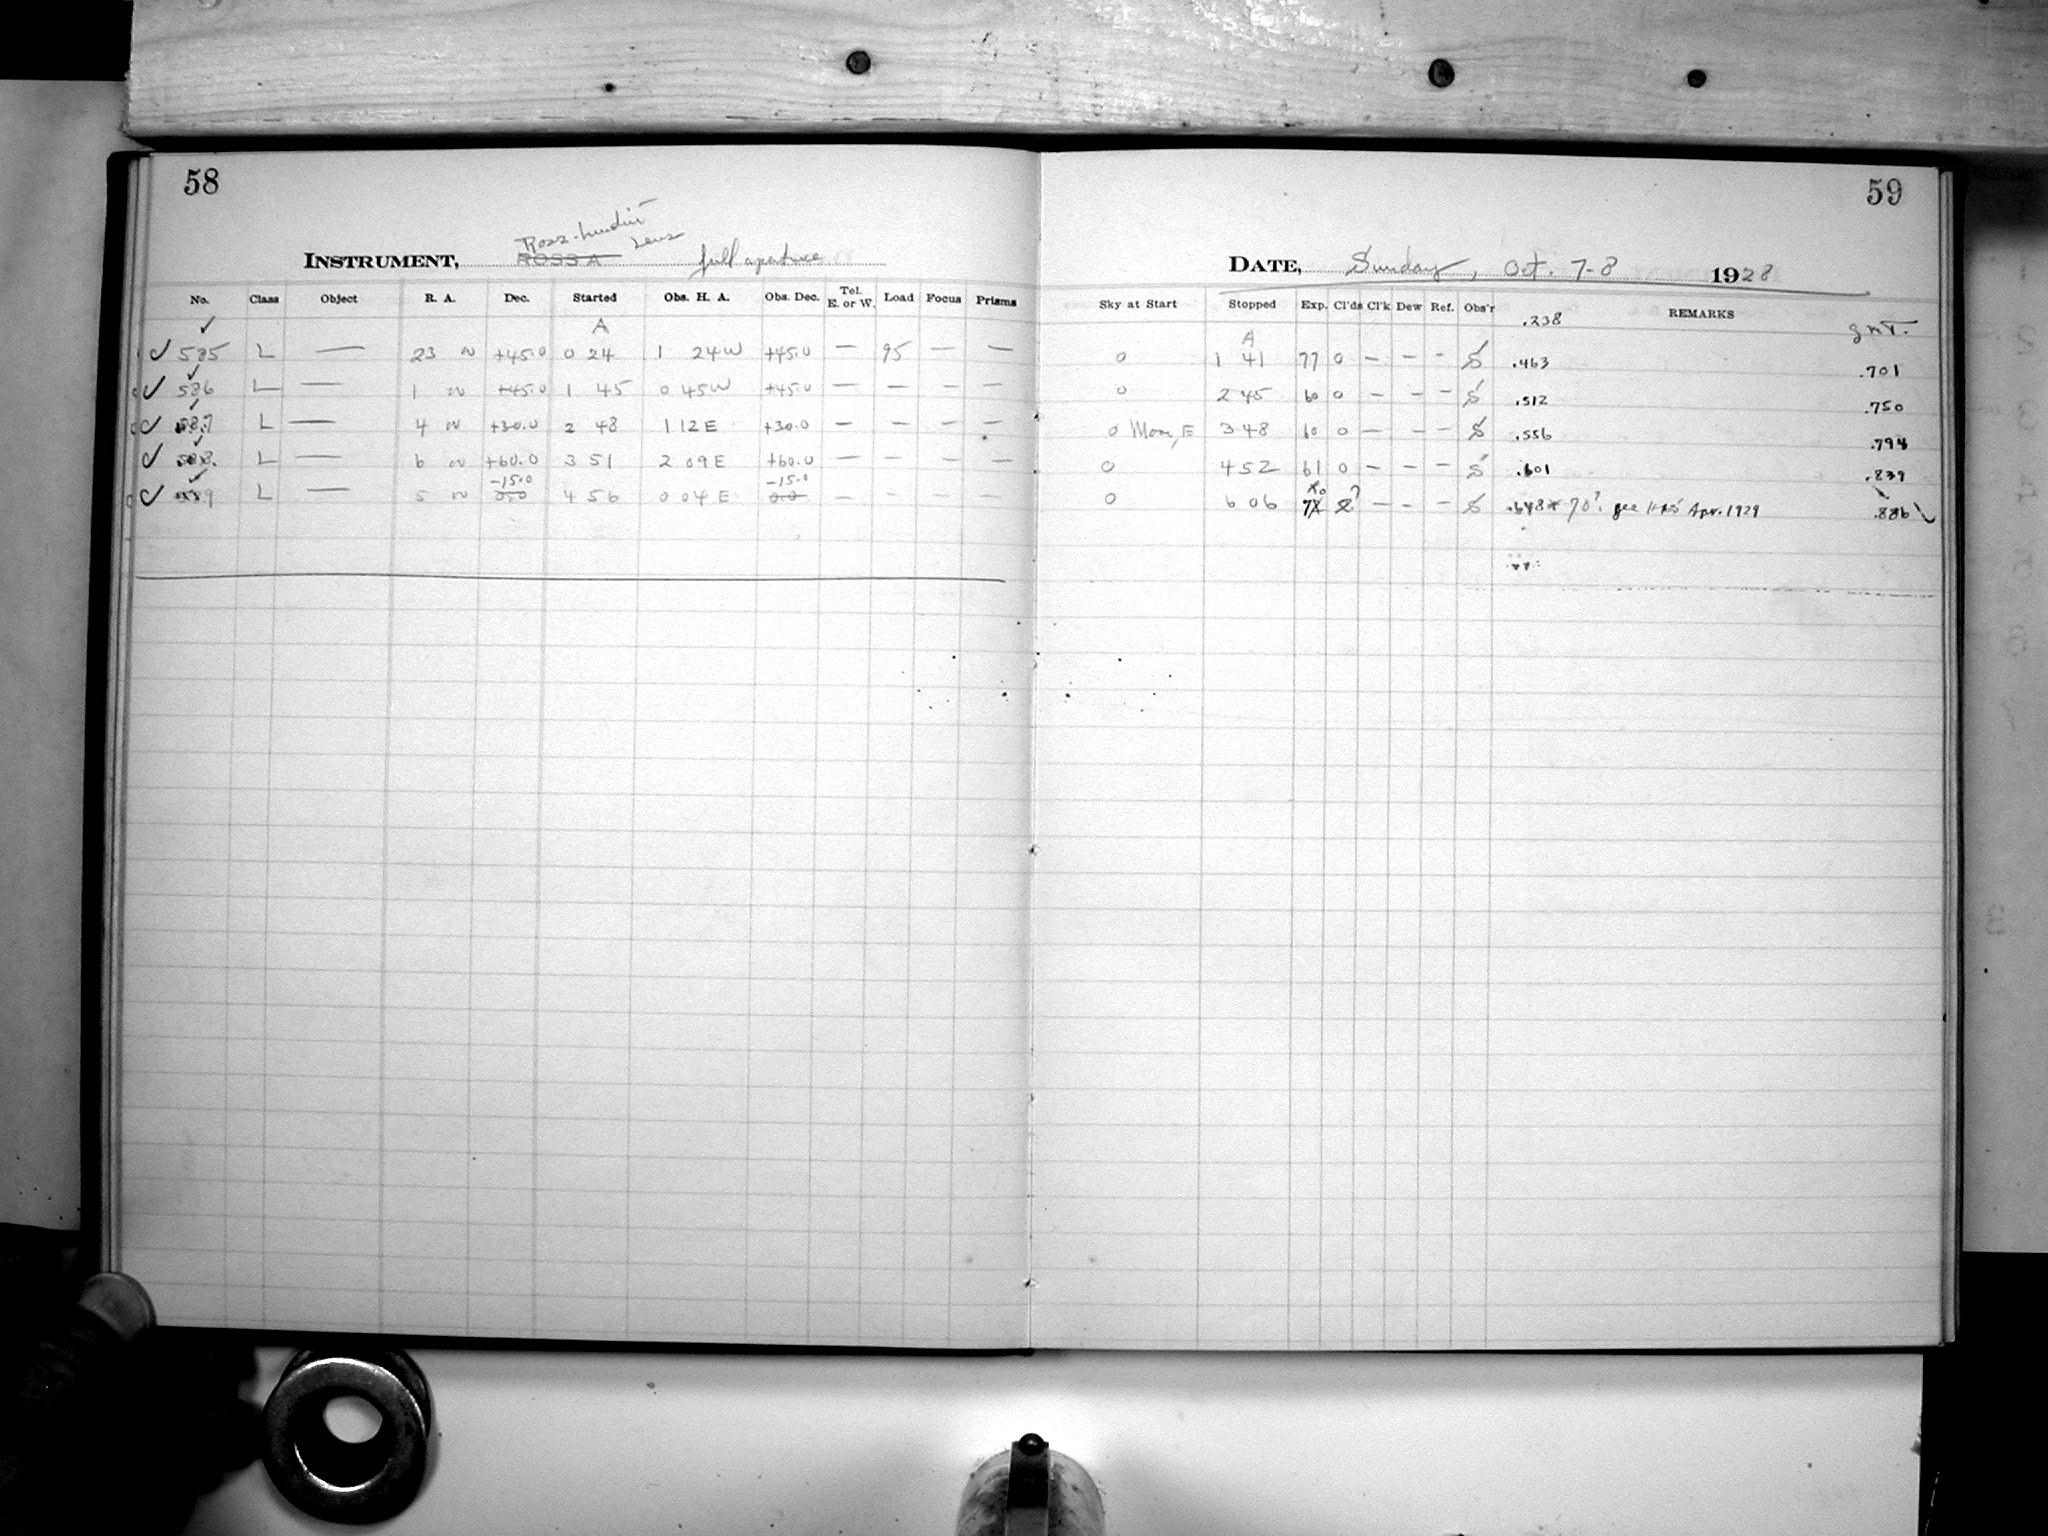 58
Ross-Lundin Lens
INSTRUMENT, ROSS A full aperture
No. Class Object R. A. Dec. Started Obs. H. A. Obs. Dec. Tel. E. or W. Load Focus Prisms
✓ A
✓ 585 L — 23 ~ +45.0 0 24 1 24W +45.0 — 95 — —
✓ 586 L — 1 ~ +45.0 1 45 0 45W +45.0 — — — —
✓ 587 L — 4 ~ +30.0 2 48 1 12E +30.0 — — — —
✓ 588 L — 6 ~ +60.0 3 51 2 09E +60.0 — — — —
-15.0 -15.0
✓ 589 L — 5 ~ 0.0 4 56 0 04E 0.0 — — — —
59
DATE, Sunday, Oct. 7-8 1928
Sky at Start Stopped Exp. Cl'ds Cl'k Dew Ref. Obs'r REMARKS
.238 GMT.
A
0 1 41 77 0 — — — S .463 .701
0 2 45 60 0 — — — S .512 .750
0 Moon, E 3 48 60 0 — — — S .556 .794
0 4 52 61 0 — — — S .601 .839
0 6 06 70 2? — — — S .648* 70? see Apr. 1929 .886